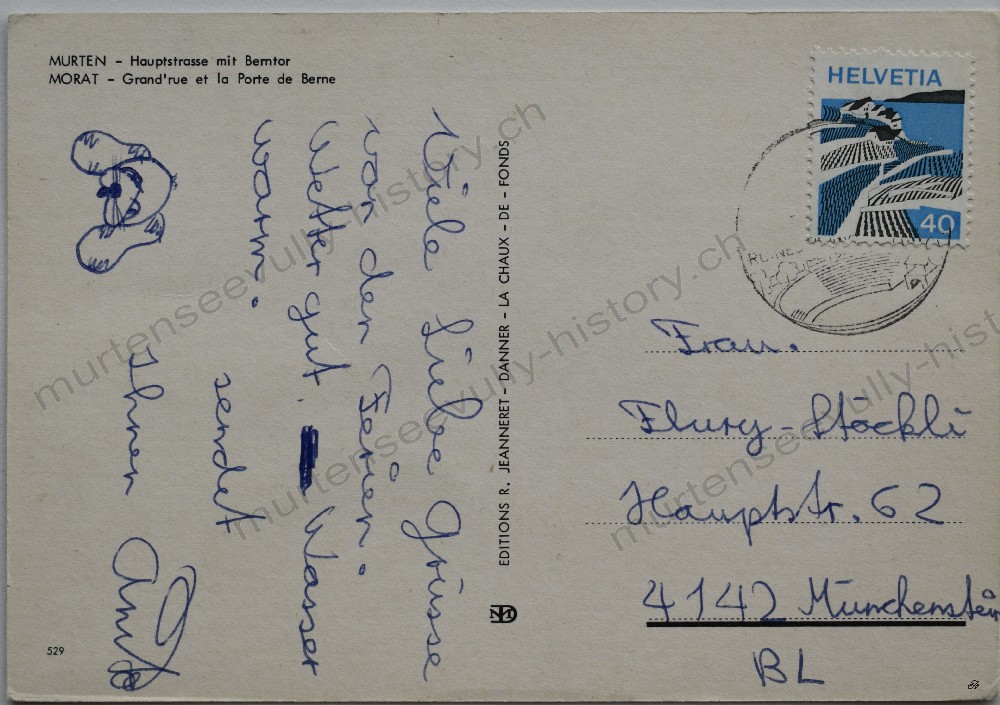 MURTEN – Hauptstrasse mit Berntor
MORAT – Grand'rue et la Porte de Berne
Viele liebe Grüsse
von den Ferien.
Wetter gut. Wasser
warm.
sendet
Ihnen
EDITIONS R. JEANNERET - DANNER - LA CHAUX - DE - FONDS
HELVETIA
40
Frau.
Flury-Stöckli
Hauptstr. 62
4142 Münchenstein
BL
529
murtenseevully-history.ch
murtenseevully-history.ch
murtenseevully-history.ch